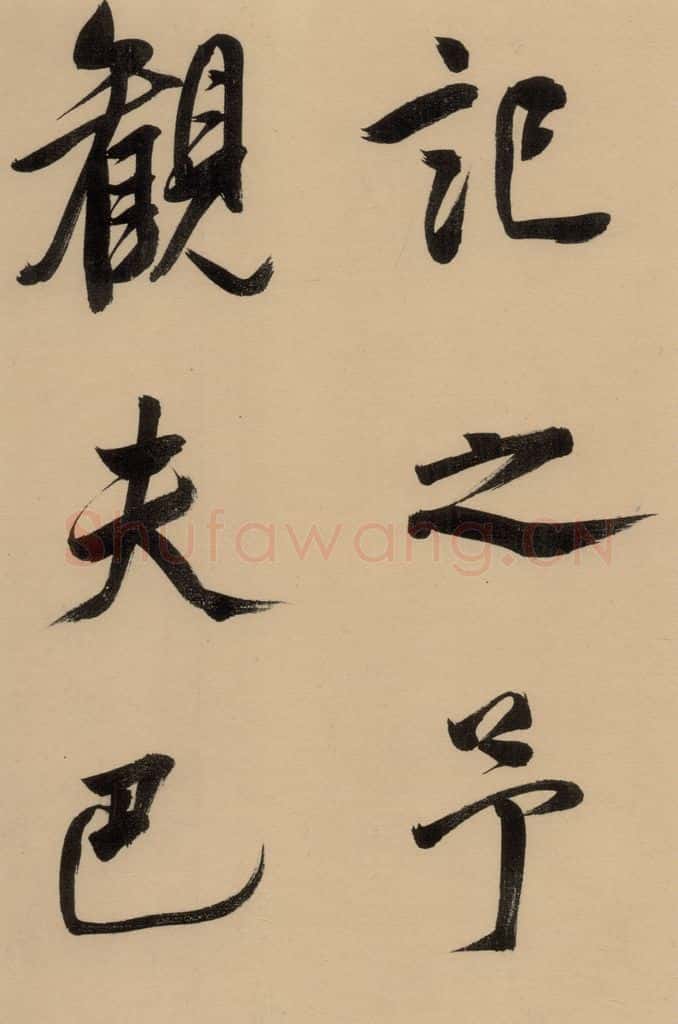 記之予
觀夫巴
Shufawang.CN